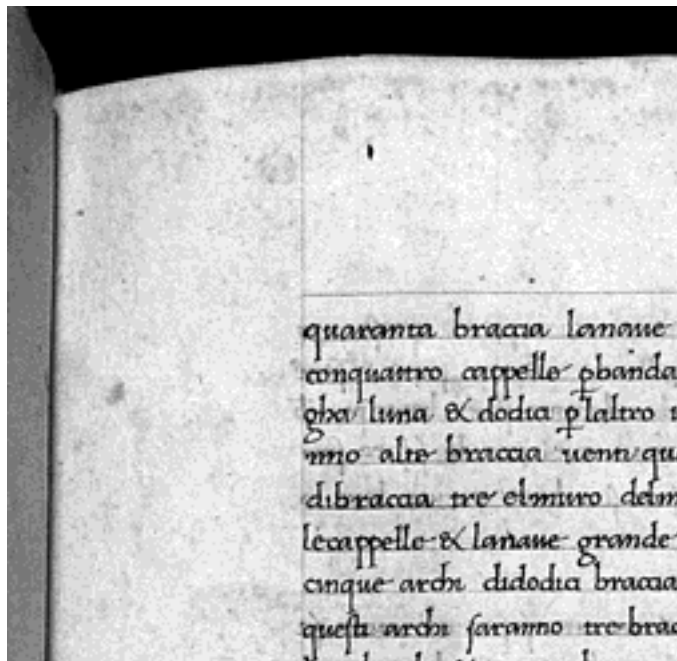 quaranta braccia lanaue
conquattro cappelle ꝑbanda
gha luna & dodici ꝑlaltro
nno alte braccia uenti qu
dibraccia tre elmuro delm
lecappelle & lanaue grande
cinque archi didodici braccia
questi archi saranno tre brac